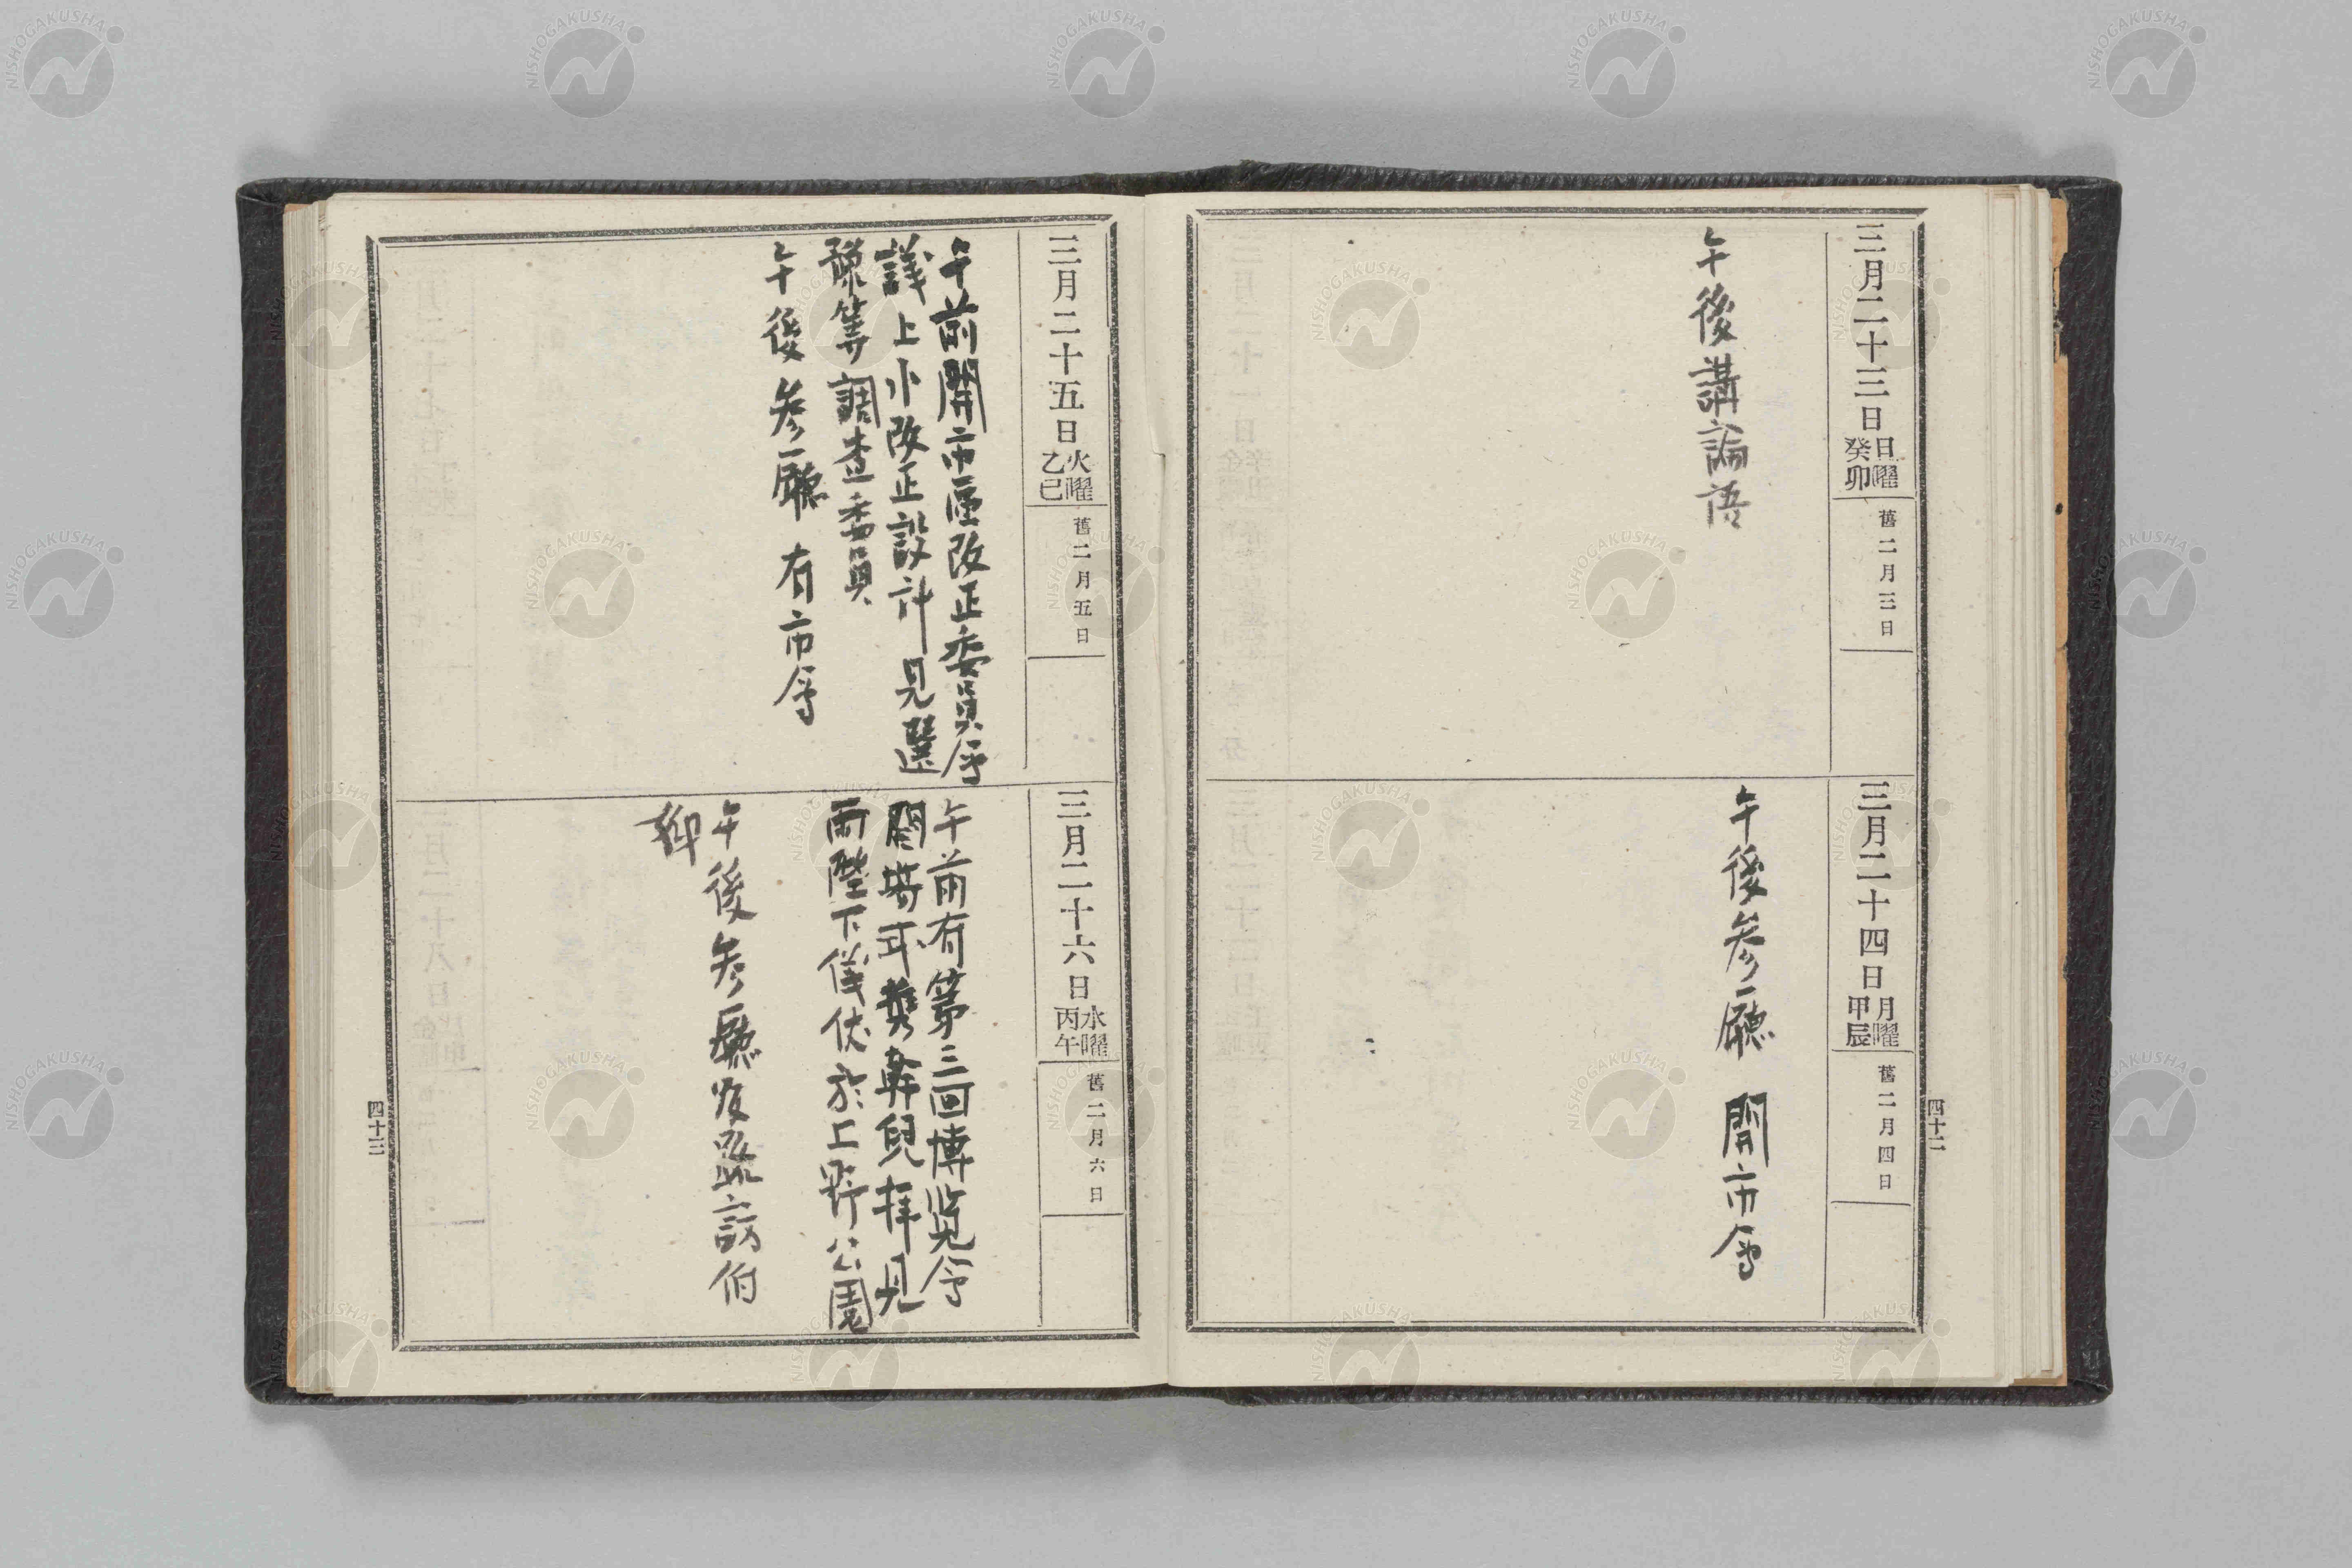 三月二十三日 日曜 癸卯 舊二月三日
午後講論語
三月二十四日 月曜 甲辰 舊二月四日
午後参廳 開市會
四十二
三月二十五日 火曜 乙巳 舊二月五日
午前開市區改正委員會
議上水改正設計見選
等調査委員
午後参廳 有市會
三月二十六日 水曜 丙午 舊二月六日
午前有第三回博覧會
開 兒拝見
両陛下儀仗於上野公園
午後参廳 訪伯
卿
四十三
NISHOGAKUSHA